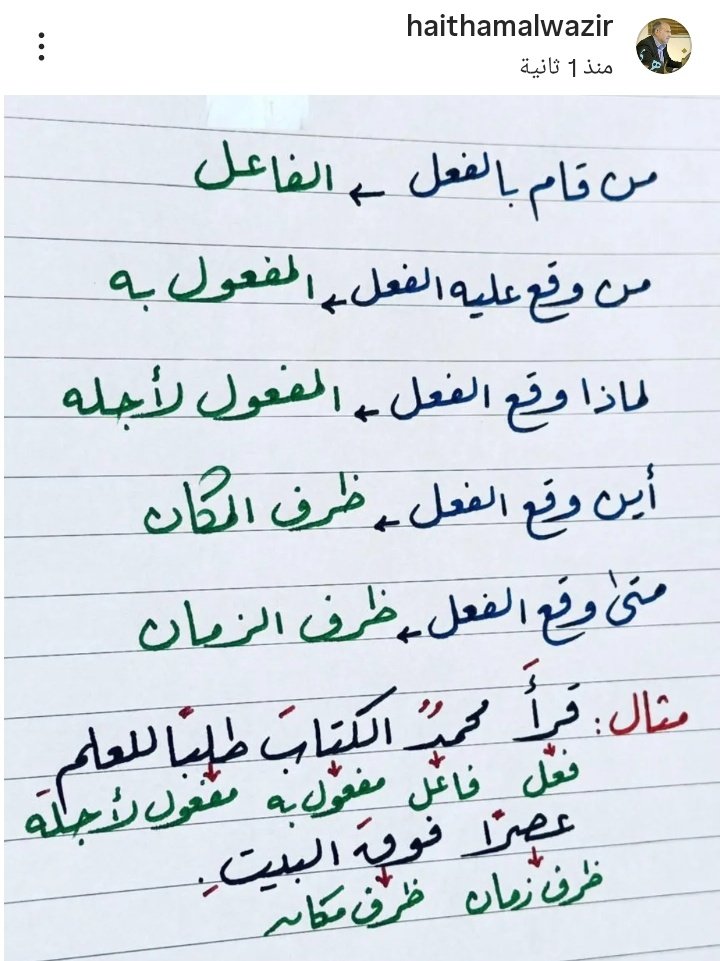 haithamalwazir
منذ 1 ثانية
من قام بالفعل ← الفاعل
من وقع عليه الفعل ← المفعول به
لماذا وقع الفعل ← المفعول لأجله
أين وقع الفعل ← ظرف المكان
متىٰ وقع الفعل ← ظرف الزمان
مثال: قرأَ محمدٌ الكتابَ طلبًا للعلم
فعل فاعل مفعول به مفعول لأجله
عصرًا فوقَ البيتِ.
ظرف زمان ظرف مكان